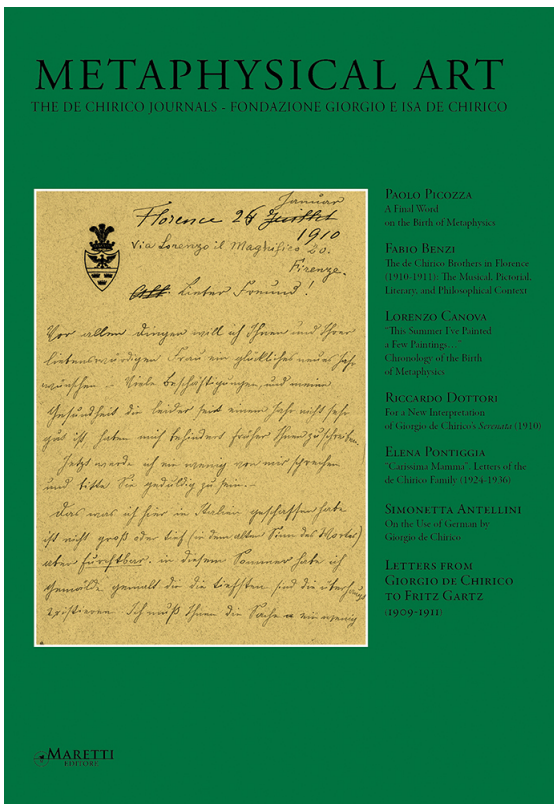 METAPHYSICAL ART
THE DE CHIRICO JOURNALS - FONDAZIONE GIORGIO E ISA DE CHIRICO
Januar
Florence 26 Juillet
1910
Via Lorenzo il Magnifico 20.
Firenze.
Lieber Freund!
Vor allen Dingen will ich Ihnen und Ihrer
liebenswürdigen Frau ein glückliches neues Jahr
wünschen – Viele Beschäftigungen, und meine
Gesundheit die leider seit einem Jahr nicht sehr
gut ist, haben mich behindert früher Ihnen zu schreiben.
Jetzt werde ich ein wenig von mir sprechen
und bitte Sie geduldig zu sein. –
Das was ich hier in Italien geschaffen habe
ist nicht groß oder tief (in dem alten Sinn des Wortes)
aber furchtbar. in diesem Sommer habe ich
Gemälde gemalt die die tiefsten sind die überhaupt
existieren. Ich muß Ihnen die Sache ein wenig
PAOLO PICOZZA
A Final Word
on the Birth of Metaphysics
FABIO BENZI
The de Chirico Brothers in Florence
(1910-1911): The Musical, Pictorial,
Literary, and Philosophical Context
LORENZO CANOVA
"This Summer I've Painted
a Few Paintings…"
Chronology of the Birth
of Metaphysics
RICCARDO DOTTORI
For a New Interpretation
of Giorgio de Chirico's Serenata (1910)
ELENA PONTIGGIA
"Carissima Mamma". Letters of the
de Chirico Family (1924-1936)
SIMONETTA ANTELLINI
On the Use of German by
Giorgio de Chirico
LETTERS FROM
GIORGIO DE CHIRICO
TO FRITZ GARTZ
(1909-1911)
MARETTI
EDITORE